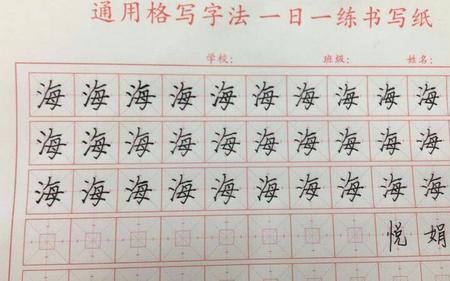 通用格写字法 一日一练书写纸
学校： 班级： 姓名：
海 海 海 海 海 海 海 海 海 海
海 海 海 海 海 海 海 海 海 海
海 海 海 海 海 海 海 海 海 海
悦 娟